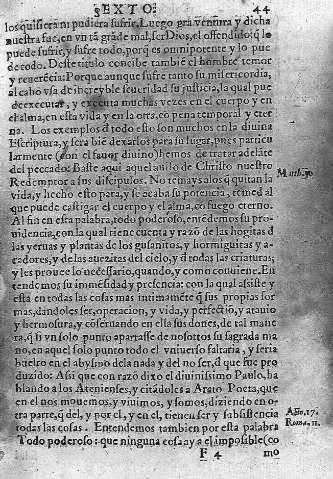 SEXTO: 44
los quisiera ni pudiera sufrir. Luego grã ventura y dicha
nuestra fue, en vn tã grãde mal, ser Dios, el ofendido: q̃ lo
puede sufrir, y sufre todo, porq̃ es omnipotente y lo pue
de todo. Deste titulo concibe tambiẽ el hombre temor
y reuerẽcia: Porque aunque sufre tanto su misericordia,
al cabo vsa de increyble seueridad su justicia, la qual pue
de executar, y executa muchas vezes en el cuerpo y en
el alma, en esta vida y en la otra, cõ pena temporal y eter
na. Los exemplos d̃ todo esto son muchos en la diuina
Escriptura, y sera biẽ dexarlos para su lugar, pues particu
larmente (con el fauor diuino) hemos de tratar adelãte
del peccado: Baste aqui aquel auiso de Christo nuestro
Redemptor a sus discipulos. No temays a los q̃ quitan la
vida, y hecho esto para, y se acaba su potencia, temed al
que puede castigar el cuerpo y el alma, cõ fuego eterno.
Al fin en esta palabra, todo poderoso, entẽdemos su pro
uidencia, con la qual tiene cuenta y razõ de las hogitas d̃
las yeruas y plantas de los gusanitos, y hormiguitas y a-
radores, y de las auezitas del cielo, y d̃ todas las criaturas;
y les prouee lo necessario, quando, y como conuiene. En
tendemos su immẽsidad y presencia: con la qual assiste y
està en todas las cosas mas intimamẽte q̃ sus propias for
mas, dandoles ser, operacion, y vida, y perfectiõ, y atauio
y hermosura, y cõseruando en ella sus dones, de tal mane
ra, q̃ si vn solo punto apartasse de nosotros su sagrada ma
no, en aquel solo punto todo el vniuerso faltaria, y seria
buelto en el abysmo dela nada y del no ser, d̃ que fue pro
duzido: Assi que con razõ dixo el diuinissimo Paulo, ha
blando a los Atenienses, y citãdoles a Arato Poeta, que
en el nos mouemos, y viuimos, y somos, diziendo en o-
tra parte, q̃ del, y por el, y en el, tienen ser y subsistencia
todas las cosas. Entendemos tambien por esta palabra
Todo poderoso: que ninguna cosa ay a el impossible (co
F 4 mo
Matth. 10
Act. 17.
Roma. 11.